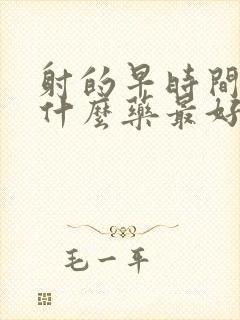 射的早時間
什麼藥最好
毛一平